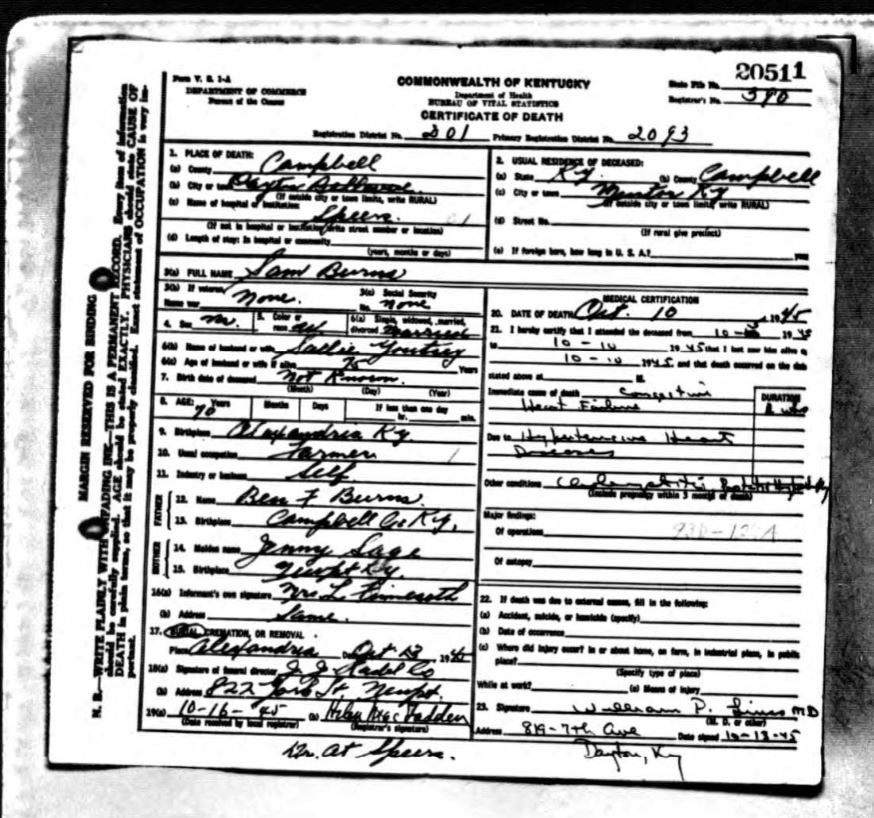 20511
Form V. S. 1-A
DEPARTMENT OF COMMERCE
Bureau of the Census
COMMONWEALTH OF KENTUCKY
Department of Health
BUREAU OF VITAL STATISTICS
CERTIFICATE OF DEATH
State File No.
Registrar's No. 390
Registration District No. 201 Primary Registration District No. 2093
1. PLACE OF DEATH:
(a) County Campbell
(b) City or town Dayton
(If outside city or town limits, write RURAL)
(c) Name of hospital or institution: Speers
(If not in hospital or institution write street number or location)
(d) Length of stay: In hospital or community
(years, months or days)
2. USUAL RESIDENCE OF DECEASED:
(a) State Ky. (b) County Campbell
(c) City or town Ky
(If outside city or town limits, write RURAL)
(d) Street No.
(If rural give precinct)
(e) If foreign born, how long in U. S. A.? years
3(a) FULL NAME Sam Burns
3(b) If veteran, Name war None. 3(c) Social Security No. None
4. Sex M. 5. Color or race 6(a) Single, widowed, married, divorced Married
6(b) Name of husband or wife Sallie Youtsey
6(c) Age of husband or wife if alive 75 Years
7. Birth date of deceased Not Known.
(Month) (Day) (Year)
8. AGE: Years 70 Months Days If less than one day hr. min.
9. Birthplace Alexandria Ky
10. Usual occupation Farmer
11. Industry or business Self
FATHER
12. Name Ben F Burns.
13. Birthplace Campbell Co Ky.
MOTHER
14. Maiden name Jenny Sage
15. Birthplace Newpt Ky.
16(a) Informant's own signature Mrs L
(b) Address Same.
17. BURIAL, CREMATION, OR REMOVAL
Place Alexandria Date Oct 13 1945
18(a) Signature of funeral director J. J. Radel Co
(b) Address 822 York St Newpt.
19(a) 10-16-45 (b) Helen MacFadden
(Date received by local registrar) (Registrar's signature)
MEDICAL CERTIFICATION
20. DATE OF DEATH Oct. 10, 1945
21. I hereby certify that I attended the deceased from 10- 1945
to 10-10 1945 that I last saw him alive on
10-10 1945 and that death occurred on the date
stated above at M.
Immediate cause of death Congestive
Heart Failure
DURATION
Due to Hypertensive Heart
Disease
Other conditions
(Include pregnancy within 3 months of death)
Major findings:
Of operations
Of autopsy
22. If death was due to external causes, fill in the following:
(a) Accident, suicide, or homicide (specify)
(b) Date of occurrence
(c) Where did injury occur? in or about home, on farm, in industrial place, in public
place?
(Specify type of place)
While at work? (e) Means of injury
23. Signature William P. MD
(M. D. or other)
Address 819-7th Ave Date signed 10-13-45
Dayton, Ky
Dr. at Speers.
MARGIN RESERVED FOR BINDING
N. B.—WRITE PLAINLY WITH UNFADING INK—THIS IS A PERMANENT RECORD. Every item of information
should be carefully supplied. AGE should be stated EXACTLY. PHYSICIANS should state CAUSE OF
DEATH in plain terms, so that it may be properly classified. Exact statement of OCCUPATION is very im-
portant.